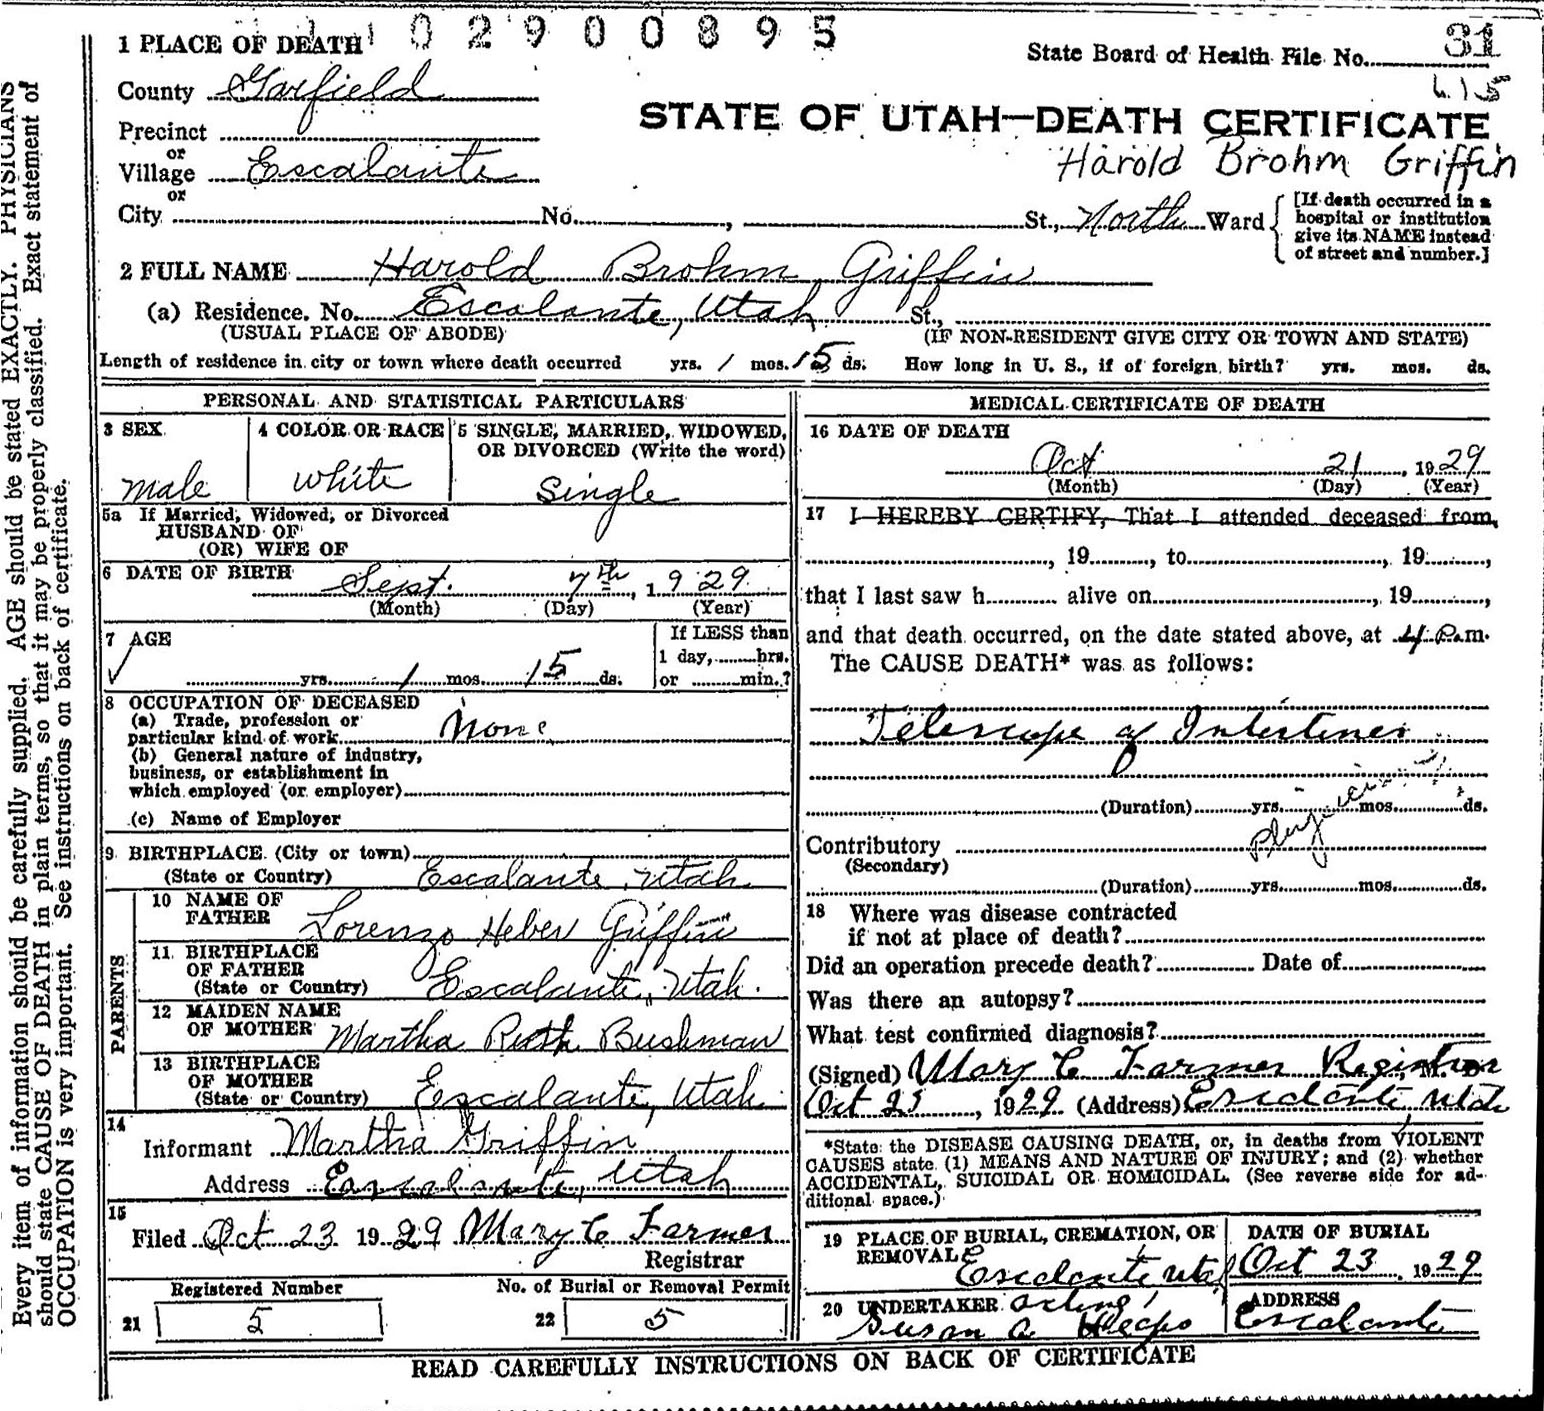 1 0 2 9 0 0 8 9 5
1 PLACE OF DEATH
State Board of Health File No. 31
County Garfield
STATE OF UTAH—DEATH CERTIFICATE
Precinct
or
Harold Brohm Griffin
Village Escalante
or
City No. , St., North Ward
[If death occurred in a
hospital or institution
give its NAME instead
of street and number.]
2 FULL NAME Harold Brohm Griffin
(a) Residence. No. Escalante, Utah St.,
(USUAL PLACE OF ABODE) (IF NON-RESIDENT GIVE CITY OR TOWN AND STATE)
Length of residence in city or town where death occurred yrs. 1 mos. 15 ds. How long in U. S., if of foreign birth? yrs. mos. ds.
PERSONAL AND STATISTICAL PARTICULARS
3 SEX
male
4 COLOR OR RACE
white
5 SINGLE, MARRIED, WIDOWED,
OR DIVORCED (Write the word)
Single
5a If Married, Widowed, or Divorced
HUSBAND OF
(OR) WIFE OF
6 DATE OF BIRTH Sept. 7th, 1929
(Month) (Day) (Year)
7 AGE
yrs. 1 mos. 15 ds.
If LESS than
1 day, hrs.
or min.?
8 OCCUPATION OF DECEASED
(a) Trade, profession or
particular kind of work None
(b) General nature of industry,
business, or establishment in
which employed (or employer)
(c) Name of Employer
9 BIRTHPLACE (City or town)
(State or Country) Escalante, Utah
PARENTS
10 NAME OF
FATHER Lorenzo Heber Griffin
11 BIRTHPLACE
OF FATHER
(State or Country) Escalante, Utah.
12 MAIDEN NAME
OF MOTHER Martha Ruth Bushman
13 BIRTHPLACE
OF MOTHER
(State or Country) Escalante, Utah
14
Informant Martha Griffin
Address Escalante, Utah
15
Filed Oct 23 1929 Mary C Farmer
Registrar
Registered Number
21 5
No. of Burial or Removal Permit
22 5
MEDICAL CERTIFICATE OF DEATH
16 DATE OF DEATH
Oct 21, 1929
(Month) (Day) (Year)
17 I HEREBY CERTIFY, That I attended deceased from
, 19 , to , 19 ,
that I last saw h alive on , 19 ,
and that death occurred, on the date stated above, at 4 P.m.
The CAUSE DEATH* was as follows:
Telescope of Intestines
(Duration) yrs. mos. ds.
Contributory
(Secondary)
(Duration) yrs. mos. ds.
18 Where was disease contracted
if not at place of death?
Did an operation precede death? Date of
Was there an autopsy?
What test confirmed diagnosis?
(Signed) Mary C Farmer Registrar
Oct 23, 1929 (Address) Escalante, Utah
*State the DISEASE CAUSING DEATH, or, in deaths from VIOLENT
CAUSES state (1) MEANS AND NATURE OF INJURY; and (2) whether
ACCIDENTAL, SUICIDAL OR HOMICIDAL. (See reverse side for ad-
ditional space.)
19 PLACE OF BURIAL, CREMATION, OR
REMOVAL
Escalante Utah
DATE OF BURIAL
Oct 23, 1929
20 UNDERTAKER acting
Susan A
ADDRESS
Escalante
READ CAREFULLY INSTRUCTIONS ON BACK OF CERTIFICATE
Every item of information should be carefully supplied. AGE should be stated EXACTLY. PHYSICIANS
should state CAUSE OF DEATH in plain terms, so that it may be properly classified. Exact statement of
OCCUPATION is very important. See instructions on back of certificate.